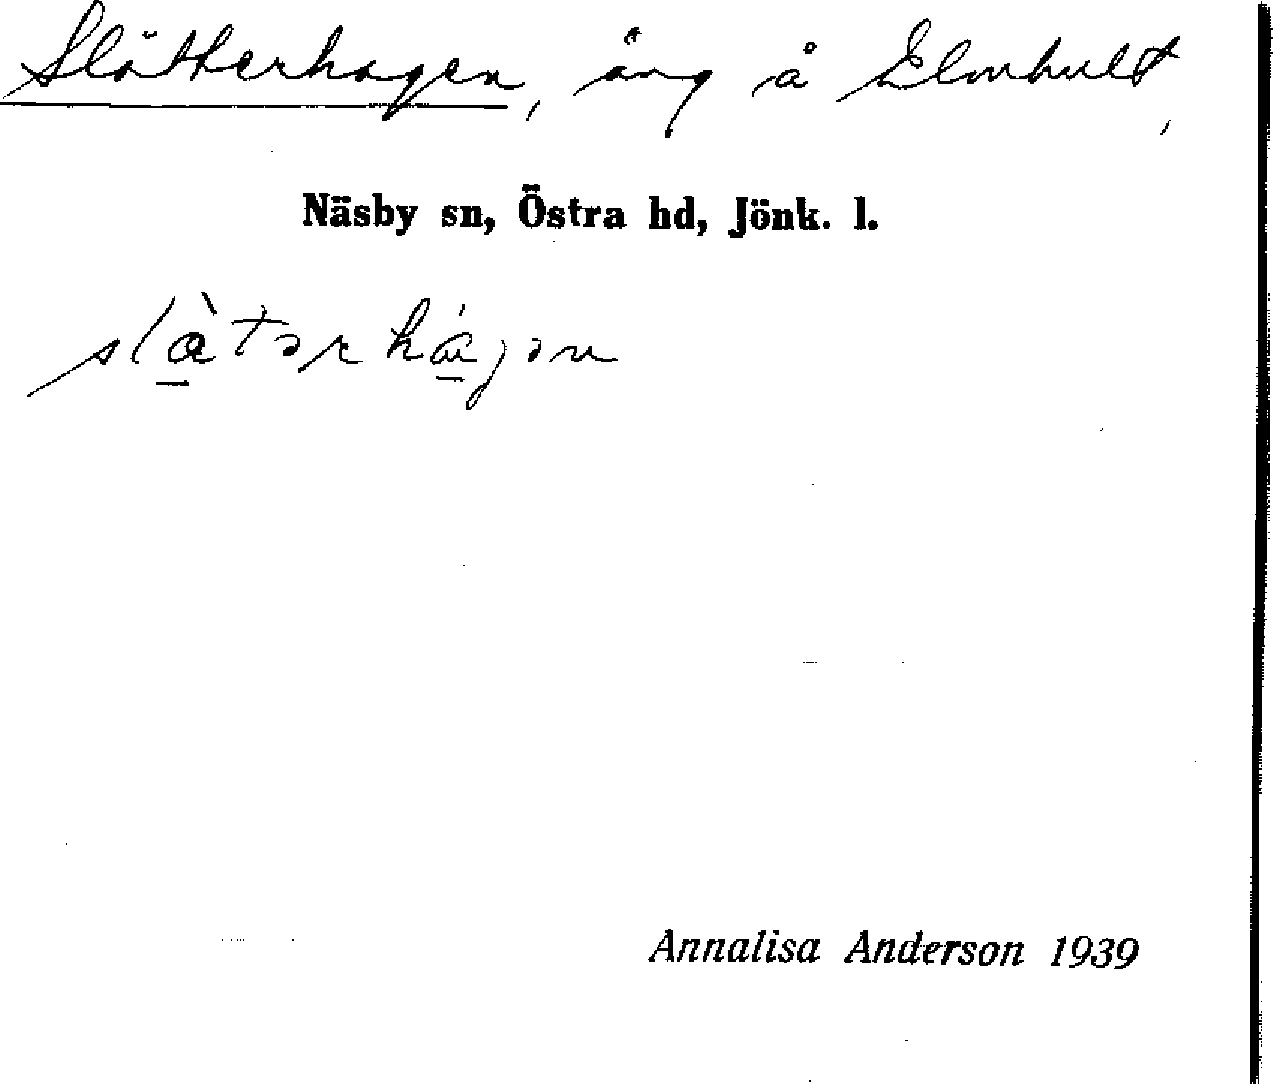 Slåtterhagen, äng å Elmhult,
Näsby sn, Östra hd, Jönk. l.
Annalisa Anderson 1939